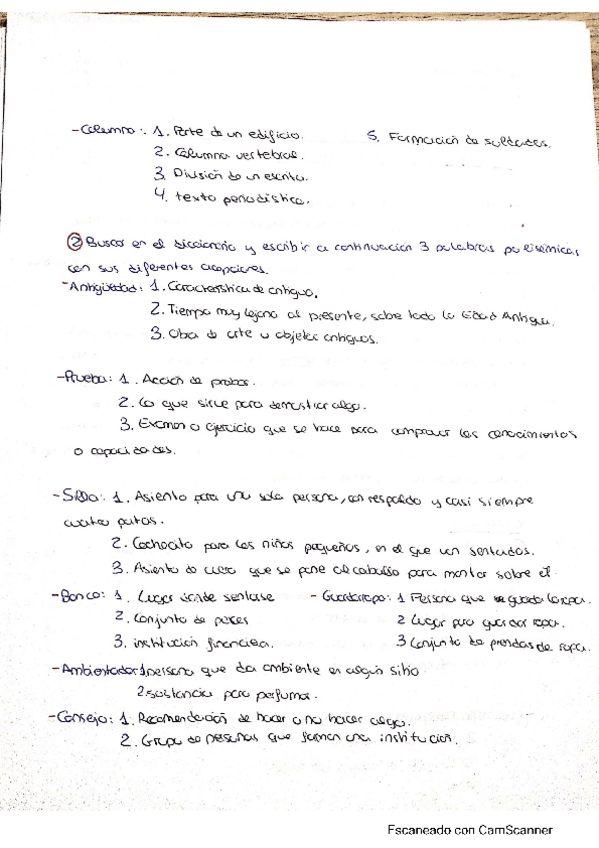 -Columna: 1. Parte de un edificio.
5. Formación de soldados.
2. Columna vertebral.
3. División de un escrito.
4. texto periodística.
② Buscar en el diccionario y escribir a continuación 3 palabras polisémicas
con sus diferentes acepciones.
-Antigüedad: 1. Característica de antiguo.
2. Tiempo muy lejano al presente, sobre todo la Edad Antigua.
3. Obra de arte u objetos antiguos.
-Prueba: 1. Acción de probar.
2. Lo que sirve para demostrar algo.
3. Examen o ejercicio que se hace para comprobar los conocimientos
o capacidades.
-Silla: 1. Asiento para una sola persona, con respaldo y casi siempre
cuatro patas.
2. Cochecito para los niños pequeños, en el que van sentados.
3. Asiento de cuero que se pone al caballo para montar sobre él.
-Banco: 1. Lugar donde sentarse
2. Conjunto de peces
3. institución financiera.
-Guardarropa: 1 Persona que guarda la ropa.
2 Lugar para guardar ropa.
3 Conjunto de prendas de ropa.
-Ambientador: 1 persona que da ambiente en algún sitio
2. sustancia para perfumar.
-Consejo: 1. Recomendación de hacer o no hacer algo.
2. Grupo de personas que forman una institución.
Escaneado con CamScanner